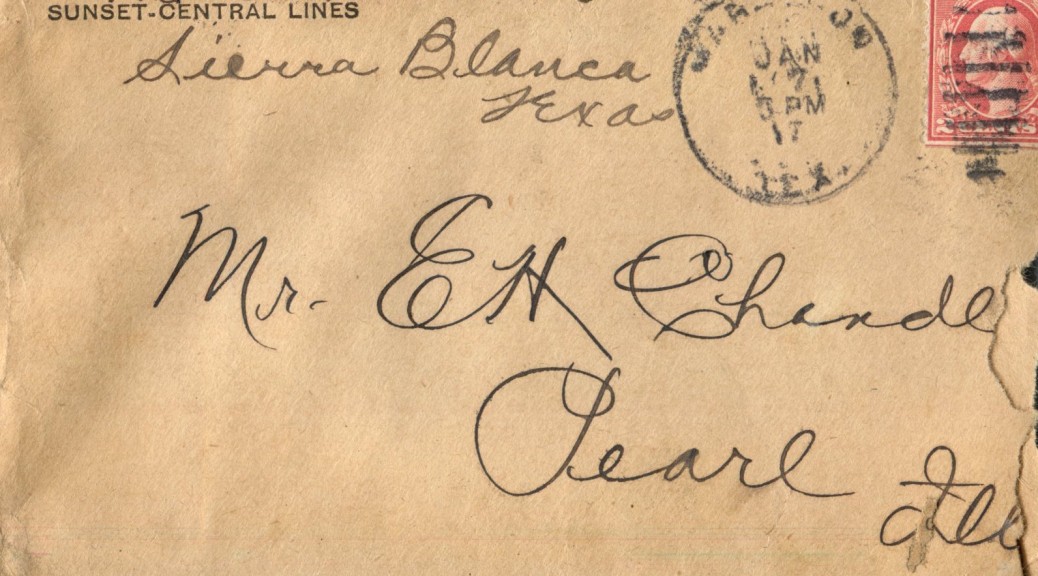 SUNSET-CENTRAL LINES
Sierra Blanca
Texas
JAN
21
5 PM
17
TEX.
2 CENTS
Mr. E H Chandl
Pearl
Ill